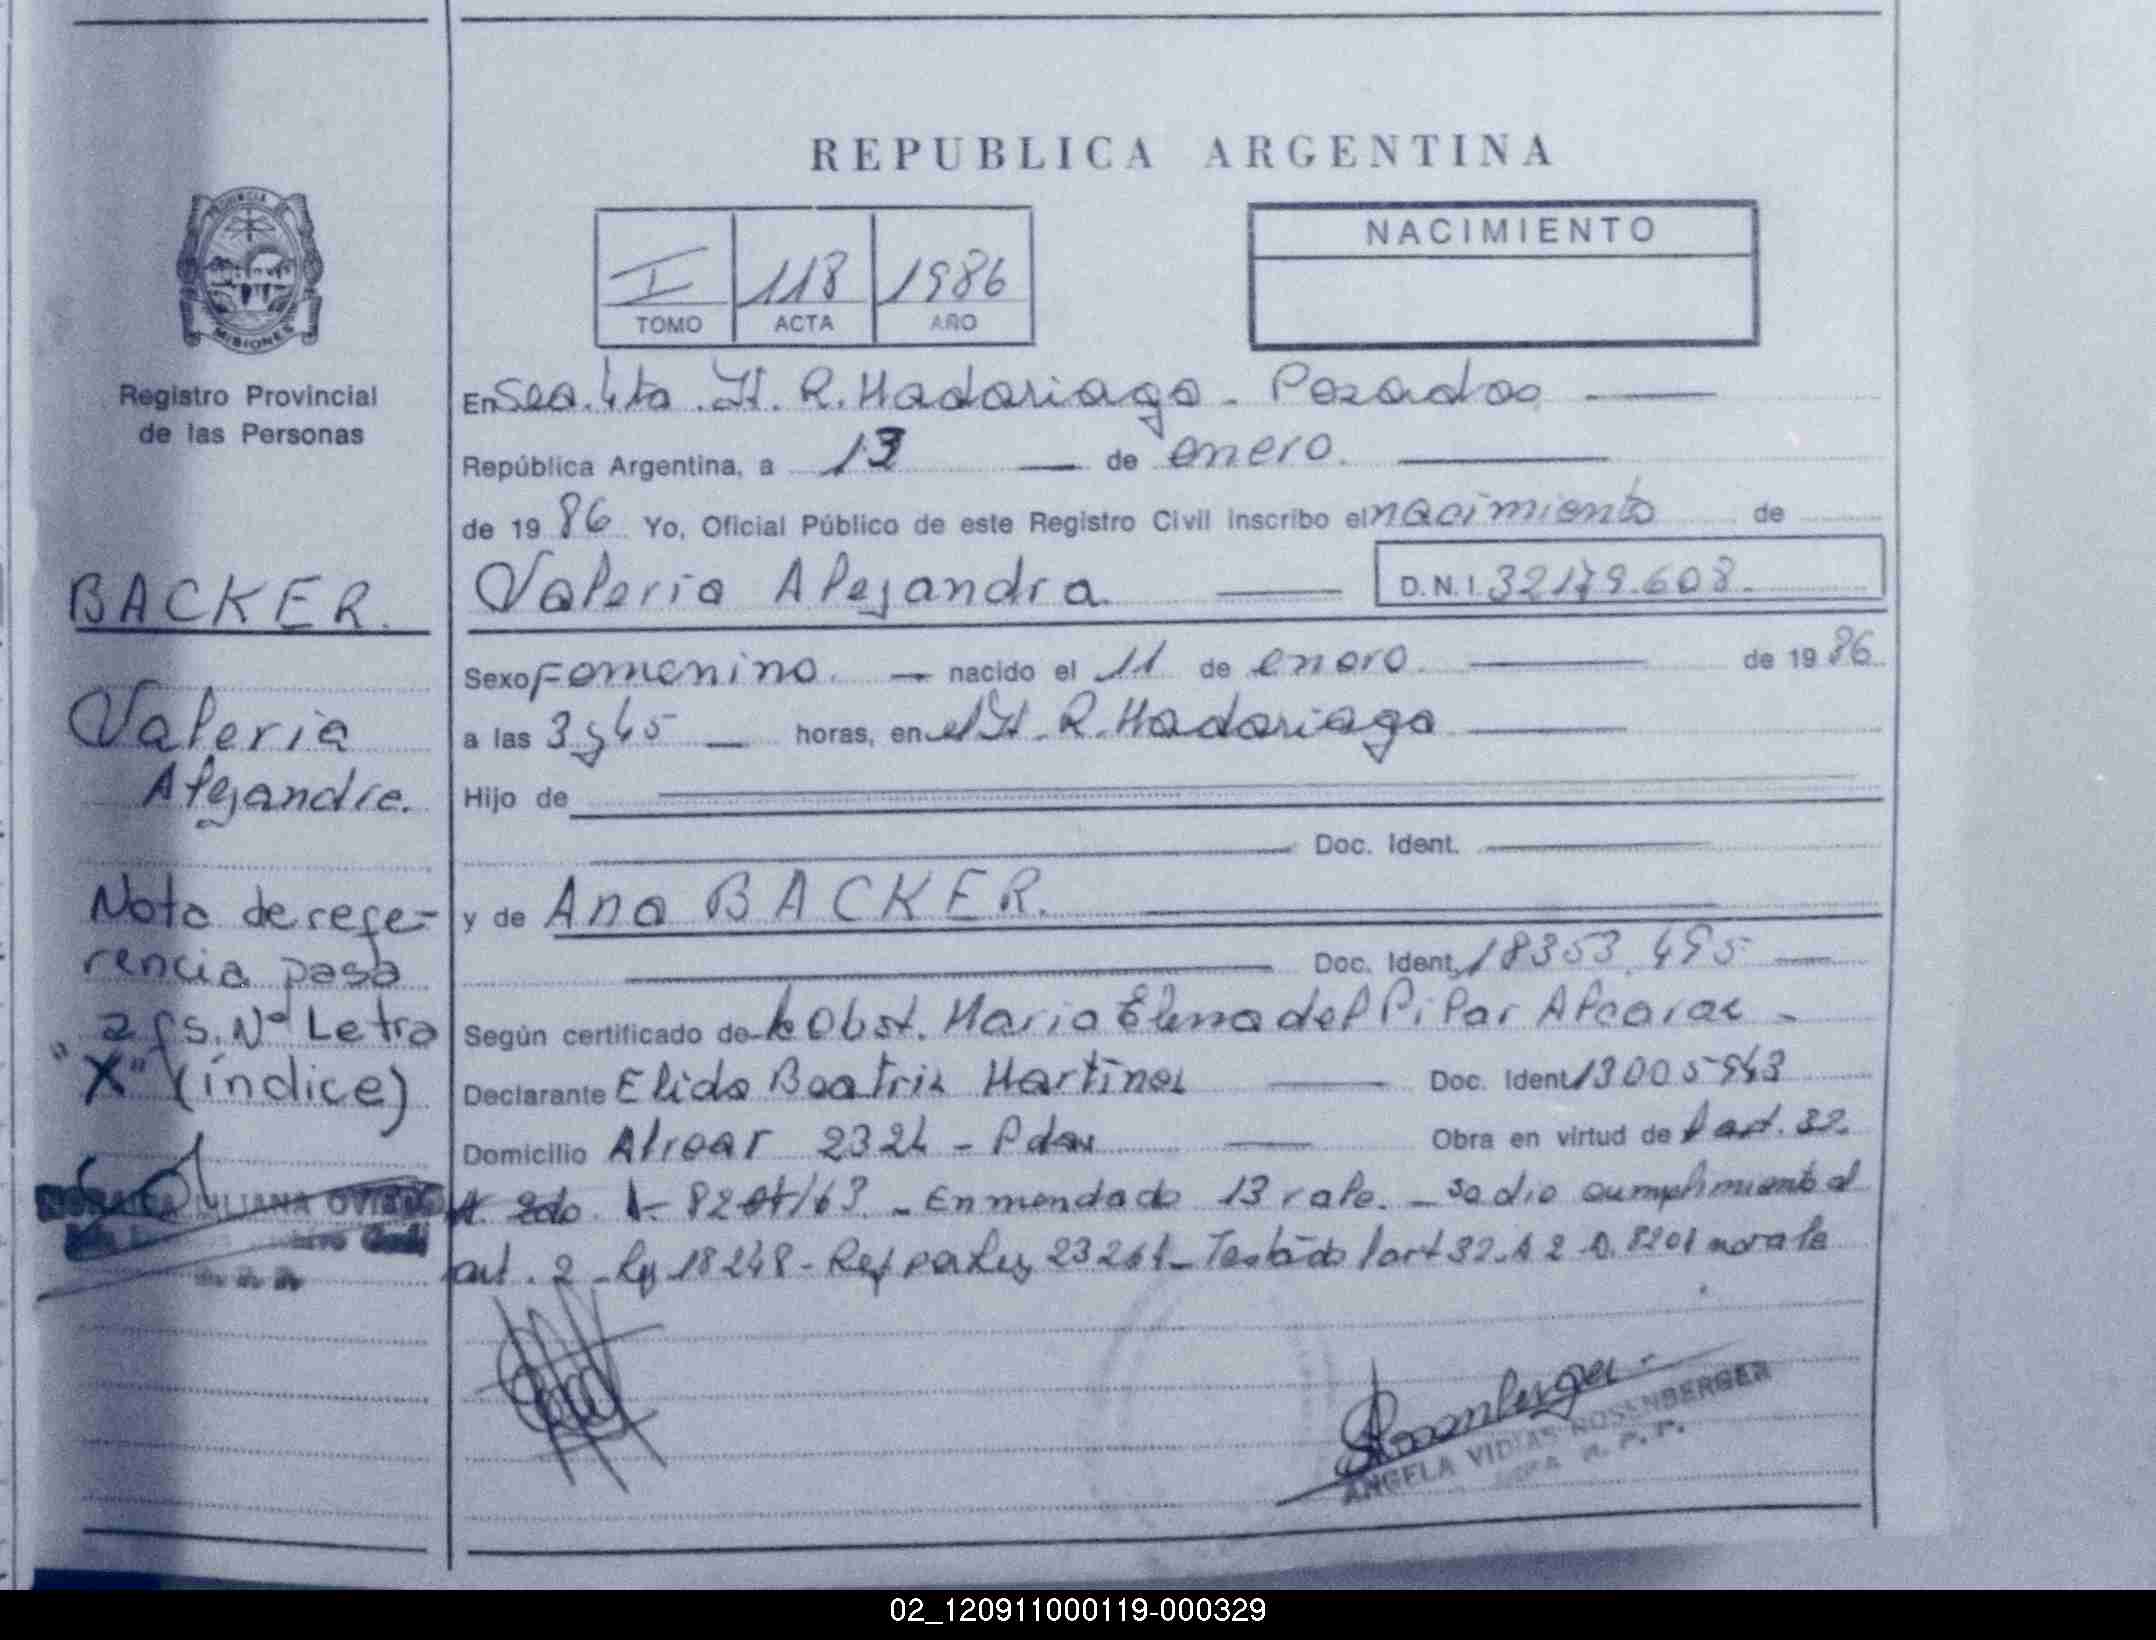 REPUBLICA ARGENTINA
PROVINCIA
MISIONES
Registro Provincial
de las Personas
I 118 1986
TOMO ACTA AÑO
NACIMIENTO
En Sec. 4ta. H. R. Madariaga - Posadas
República Argentina, a 13 de enero.
de 1986 Yo, Oficial Público de este Registro Civil inscribo el nacimiento de
Valeria Alejandra D.N.I. 32179.608.
BACKER.
Valeria
Alejandra.
Sexo Femenino. nacido el 11 de enero de 1986
a las 3 y 45 horas, en el H. R. Madariaga
Hijo de
Doc. Ident.
y de Ana BACKER.
Doc. Ident. 18353.495
Según certificado de la Obst. Maria Elena del Pilar Alcaraz -
Declarante Elida Beatriz Martinez Doc. Ident 13005943
Domicilio Alvear 2324 - Pdas Obra en virtud de l art. 32.
A. 2do. D- 8204/63. - Enmendado 13 vale. - Se dio cumplimiento al
art. 2 - Ley 18248 - Ref por Ley 23264 - Testado l art 32. A 2 D. 8204 no vale
Nota de refe-
rencia pasa
a fs. Nº Letra
"X" (índice)
JULIANA OVIEDO
Rosenberger
ANGELA VIDIAS ROSENBERGER
R. P. P.
02_120911000119-000329